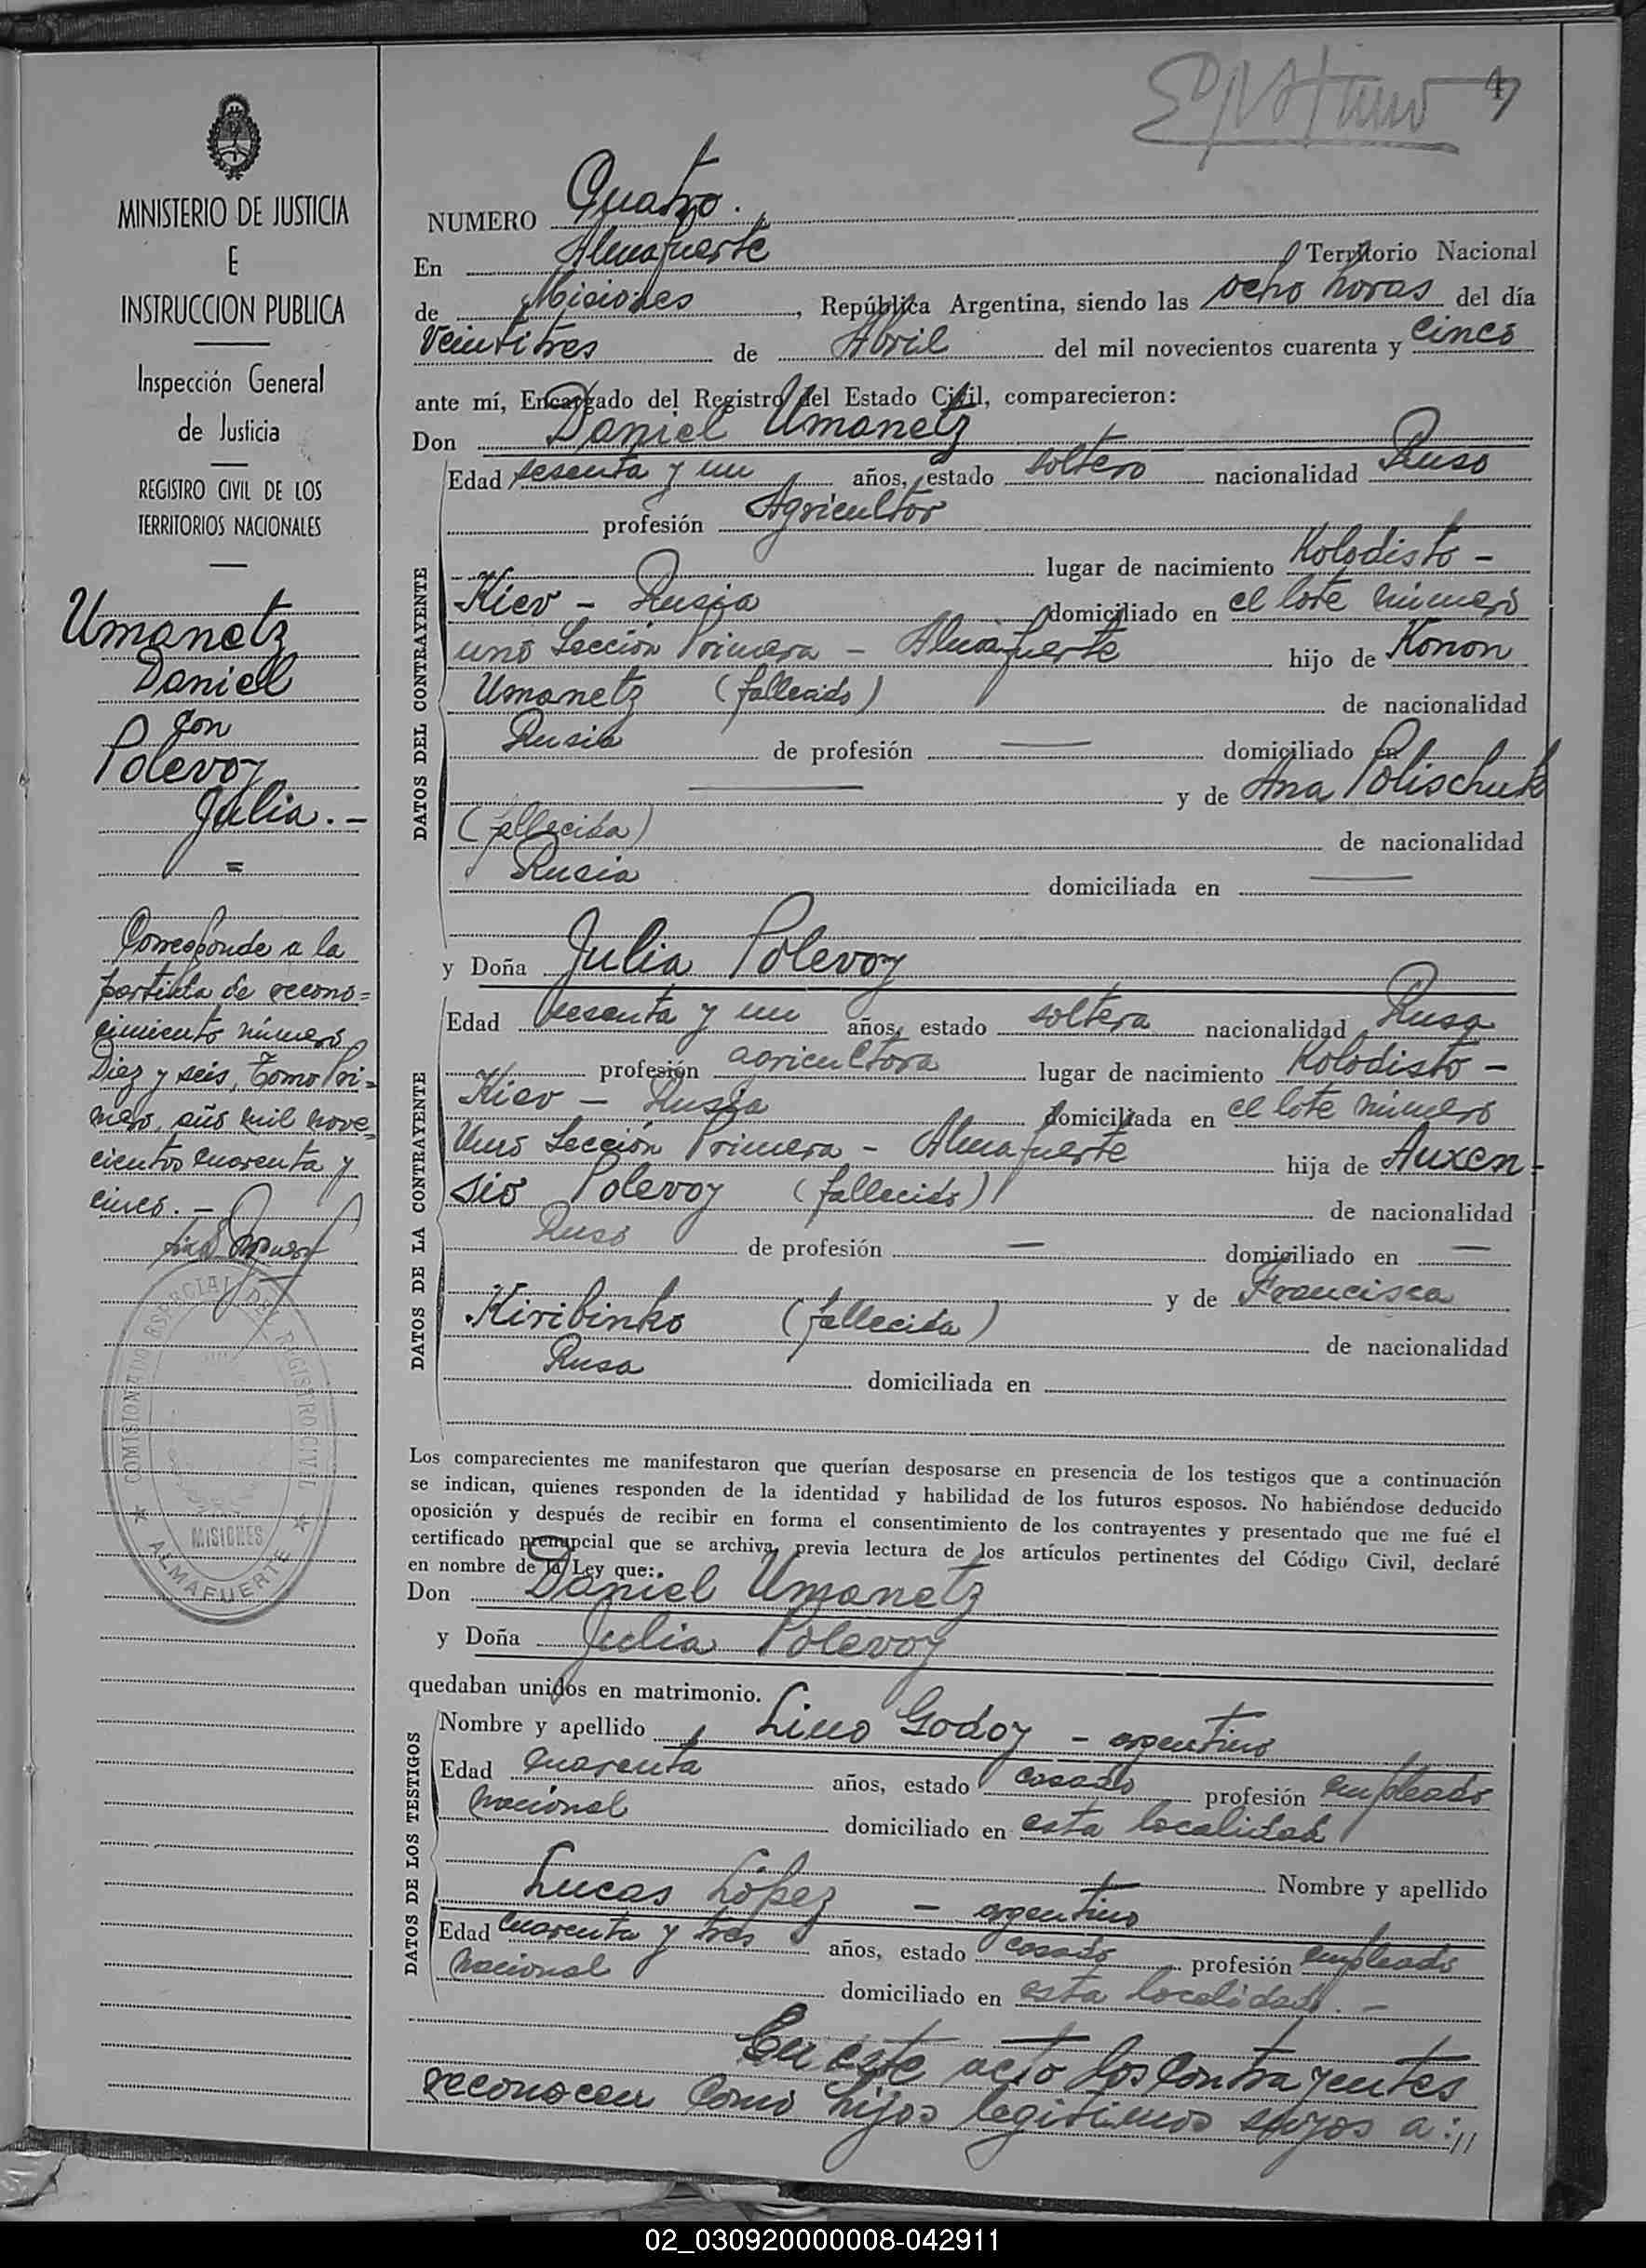 4
MINISTERIO DE JUSTICIA
E
INSTRUCCION PUBLICA
Inspección General
de Justicia
REGISTRO CIVIL DE LOS
TERRITORIOS NACIONALES
Umanetz
Daniel
con
Polevoy
Julia.-
=
Corresponde a la
partida de recono=
cimiento número
Diez y seis, Tomo Pri=
mero, año mil nove=
cientos cuarenta y
cinco.-
COMISIONADO ESPECIAL DEL REGISTRO CIVIL
MISIONES
ALMAFUERTE
NUMERO Quatro.
En Almafuerte Territorio Nacional
de Misiones, República Argentina, siendo las ocho horas del día
Veintitres de Abril del mil novecientos cuarenta y cinco
ante mí, Encargado del Registro del Estado Civil, comparecieron:
Don Daniel Umanetz
DATOS DEL CONTRAYENTE
Edad sesenta y un años, estado soltero nacionalidad Ruso
profesión Agricultor
lugar de nacimiento Kolodisto -
Kiev - Rusia domiciliado en el lote número
uno Sección Primera - Almafuerte hijo de Konon
Umanetz (fallecido) de nacionalidad
Rusia de profesión — domiciliado en
— y de Ana Polischuk
(fallecida) de nacionalidad
Rusia domiciliada en —
y Doña Julia Polevoy
DATOS DE LA CONTRAYENTE
Edad sesenta y un años, estado soltera nacionalidad Rusa
profesión agricultora lugar de nacimiento Kolodisto -
Kiev - Rusia domiciliada en el lote número
Uno Sección Primera - Almafuerte hija de Auxen-
sio Polevoy (fallecido) de nacionalidad
Ruso de profesión — domiciliado en —
y de Francisca
Kiribinko (fallecida) de nacionalidad
Rusa domiciliada en
Los comparecientes me manifestaron que querían desposarse en presencia de los testigos que a continuación
se indican, quienes responden de la identidad y habilidad de los futuros esposos. No habiéndose deducido
oposición y después de recibir en forma el consentimiento de los contrayentes y presentado que me fué el
certificado prenupcial que se archiva, previa lectura de los artículos pertinentes del Código Civil, declaré
en nombre de la Ley que:
Don Daniel Umanetz
y Doña Julia Polevoy
quedaban unidos en matrimonio.
DATOS DE LOS TESTIGOS
Nombre y apellido Lino Godoy - argentino
Edad cuarenta años, estado casado profesión empleado
nacional domiciliado en esta localidad
Nombre y apellido
Lucas López - argentino
Edad cuarenta y tres años, estado casado profesión empleado
nacional domiciliado en esta localidad.-
En este acto los contrayentes
reconocen como hijos legitimos suyos a://
02_030920000008-042911